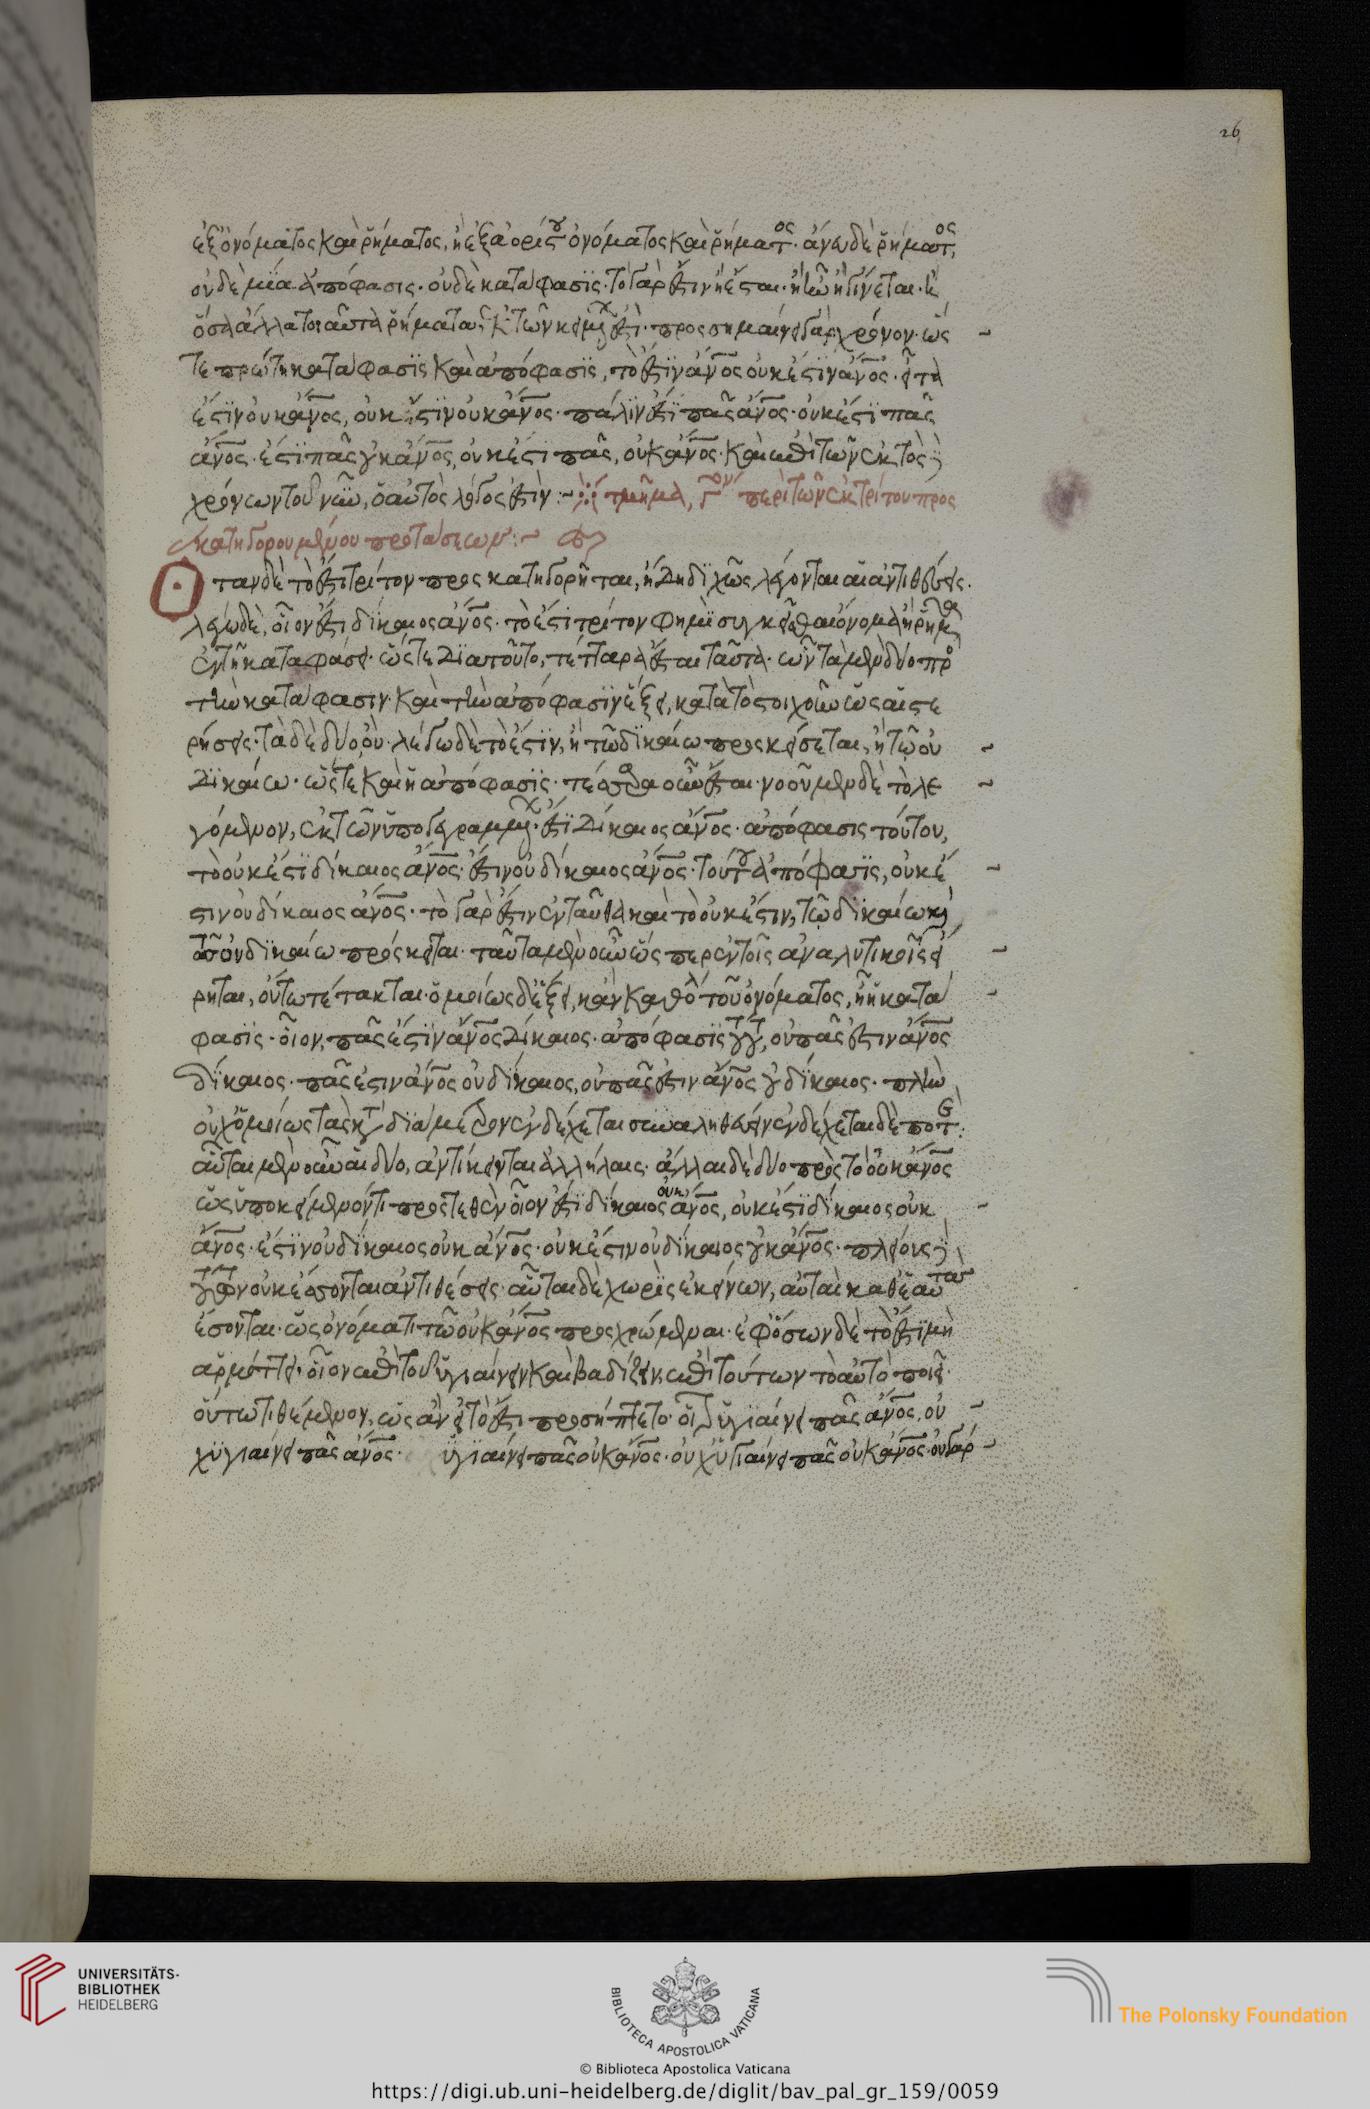 26
ἐξ ὀνόματος καὶ ῥήματος, ἢ ἐξ ἀορίστου ὀνόματος καὶ ῥήματος. ἄνευ δὲ ῥήματος,
οὐδεμία ἀπόφασις. οὐδὲ κατάφασις. τὸ γὰρ ἔστιν ἢ ἔσται. ἢ ἦν ἢ γίνεται. ἢ
ὅσα ἄλλα τοιαῦτα ῥήματα ἐκ τῶν κειμένων ἐστί. προσσημαίνει γὰρ χρόνον. ὥς
τε πρώτη κατάφασις καὶ ἀπόφασις, τὸ ἔστιν ἄνος οὐκ ἔστιν ἄνος. εἶτα
ἔστιν οὐκ ἄνος, οὐκ ἔστιν οὐκ ἄνος. πάλιν ἔστι πᾶς ἄνος. οὐκ ἔστι πᾶς
ἄνος. ἔστι πᾶς οὐκ ἄνος, οὐκ ἔστι πᾶς, οὐκ ἄνος. καὶ ἐπὶ τῶν ἐκτὸς
χρόνων τοῦ νῦν, ὁ αὐτὸς λόγος ἐστίν :~ τμῆμα, γον περὶ τῶν ἐκ τρίτου προς
κατηγορουμένου προτάσεων :~
Οταν δὲ τὸ ἔστι τρίτον προσκατηγορῆται, ἤδη διχῶς λέγονται αἱ ἀντιθέσεις.
λέγω δὲ, οἷον ἔστι δίκαιος ἄνος. τὸ ἔστι τρίτον φημὶ συγκεῖσθαι ὄνομα ἢ ῥῆμα
ἐν τῇ καταφάσει. ὥστε διὰ τοῦτο, τέτταρα ἔσται ταῦτα. ὧν τὰ μὲν δύο πρὸ
τὴν κατάφασιν καὶ τὴν ἀπόφασιν ἕξει, κατὰ τὸ στοιχοῦν ὡς αἱ στε
ρήσεις. τὰ δὲ δύο, οὔ. λέγω δὲ τὸ ἔστιν, ἢ τῶ δικαίω προσκείσεται, ἢ τῶ οὐ
δικαίω. ὥστε καὶ ἡ ἀπόφασις. τέσσαρα οὖν ἔσται. νοοῦμεν δὲ τὸ λε
γόμενον, ἐκ τῶν ὑπογεγραμμένων. ἔστι δίκαιος ἄνος. ἀπόφασις τούτου,
τὸ οὐκ ἔστι δίκαιος ἄνος. ἔστιν οὐ δίκαιος ἄνος. τούτου ἀπόφασις, οὐκ ἔ
στιν οὐ δίκαιος ἄνος. τὸ γὰρ ἔστιν ἐνταῦθα καὶ τὸ οὐκ ἔστιν, τῶ δικαίω καὶ
τῶ οὐ δικαίω πρόσκειται. ταῦτα μὲν οὖν ὥσπερ ἐν τοῖς ἀναλυτικοῖς εἴ
ρηται, οὕτω τέτακται. ὁμοίως δὲ ἕξει, κἂν καθόλου τοῦ ὀνόματος, ἦ ἡ κατά
φασις. οἷον, πᾶς ἐστὶν ἄνος δίκαιος. ἀπόφασις τούτου, οὐ πᾶς ἐστὶν ἄνος
δίκαιος. πᾶς ἐστιν ἄνος οὐ δίκαιος, οὐ πᾶς ἐστὶν ἄνος οὐ δίκαιος. πλὴν
οὐχ ὁμοίως τὰς κατὰ διάμετρον ἐνδέχεται συναληθεύειν ἐνδέχεται δὲ ποτέ.
αὗται μὲν οὖν αἱ δύο, ἀντίκεινται ἀλλήλαις. ἄλλαι δὲ δύο πρὸς τὸ οὐκ ἄνος
ὡς ὑποκείμενόν τι προστεθὲν οἷον ἔστι δίκαιος οὐκ ἄνος, οὐκ ἔστι δίκαιος οὐκ
ἄνος. ἔστιν οὐ δίκαιος οὐκ ἄνος. οὐκ ἔστιν οὐ δίκαιος οὐκ ἄνος. πλείους
τούτων οὐκ ἔσονται ἀντιθέσεις. αὗται δὲ χωρὶς ἐκείνων, αὐταὶ καθ' ἑαυτὰς
ἔσονται. ὡς ὀνόματι τῶ οὐκ ἄνος προσχρώμεναι. ἐφ' ὅσων δὲ τὸ ἔστι μὴ
ἁρμόττει. οἷον ἐπὶ τοῦ ὑγιαίνειν καὶ βαδίζειν, ἐπὶ τούτων τὸ αὐτὸ ποιεῖ
οὕτω τιθέμενον, ὡς ἂν εἰ τὸ ἔστι προσήπτετο. οἷον ὑγιαίνει πᾶς ἄνος, οὐ
χ ὑγιαίνει πᾶς ἄνος. ὑγιαίνει πᾶς οὐκ ἄνος. οὐχ ὑγιαίνει πᾶς οὐκ ἄνος. οὐ γάρ
UNIVERSITÄTS-
BIBLIOTHEK
HEIDELBERG
BIBLIOTECA APOSTOLICA VATICANA
The Polonsky Foundation
© Biblioteca Apostolica Vaticana
https://digi.ub.uni-heidelberg.de/diglit/bav_pal_gr_159/0059